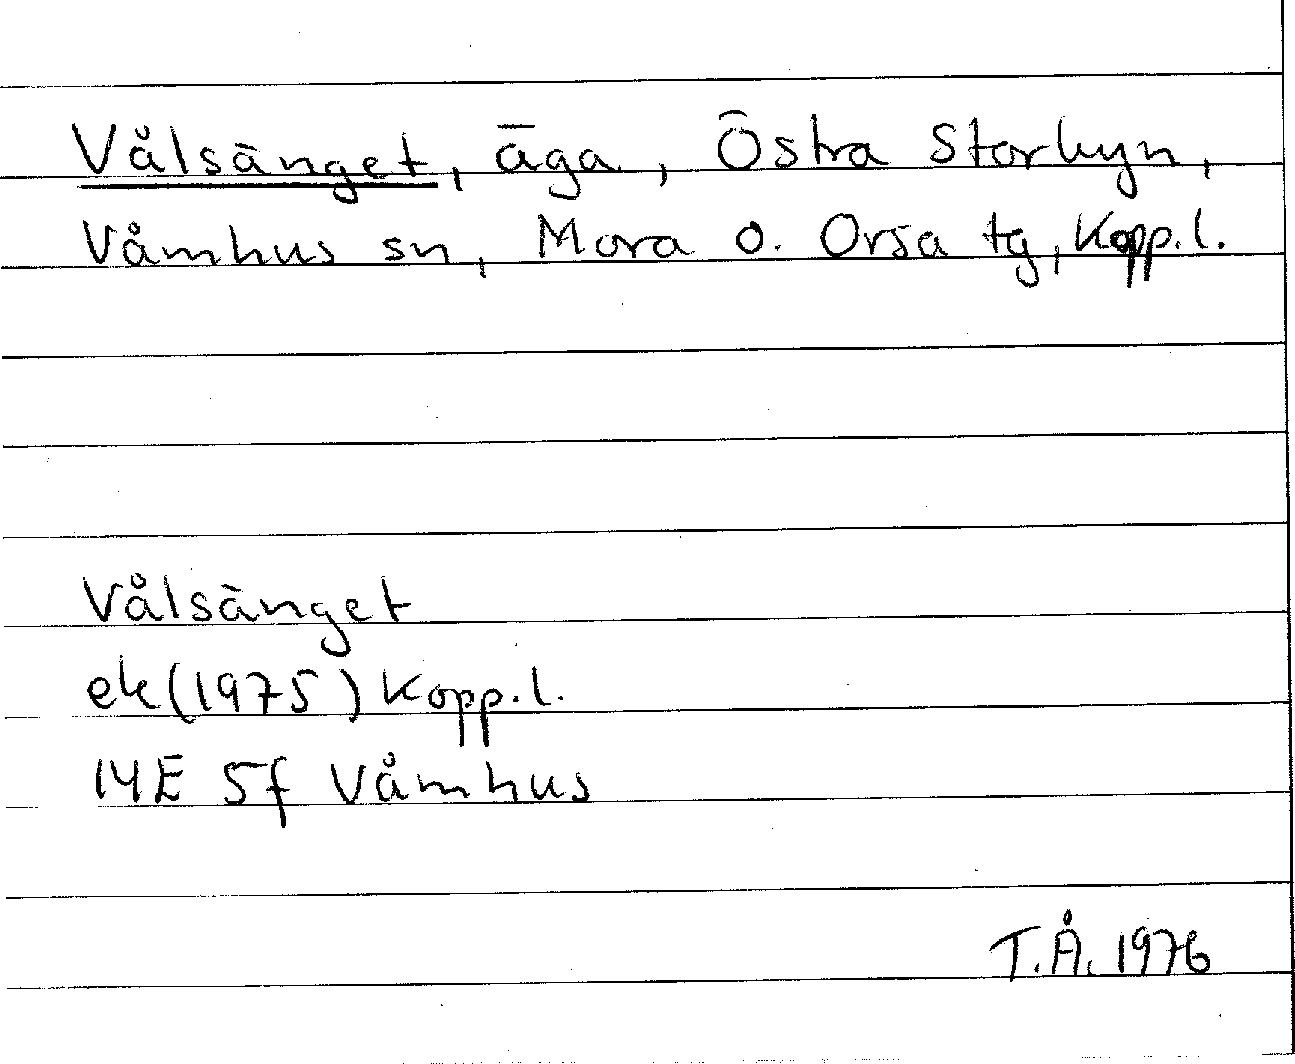 Vålsänget, äga, Östra Storbyn,
Våmhus sn, Mora o. Orsa tg, Kopp.l.
Vålsänget
ek(1975) Kopp.l.
14E 5f Våmhus
T.Å. 1976